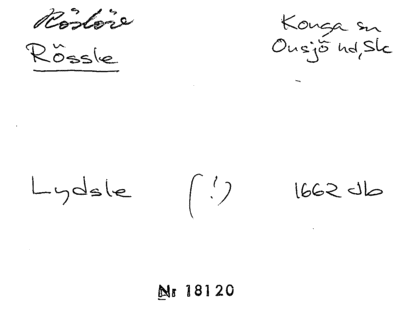 Röslöve
Rössle
Konga sn
Onsjö hd, Sk
Lydsle (!) 1662 db
Nr 18120